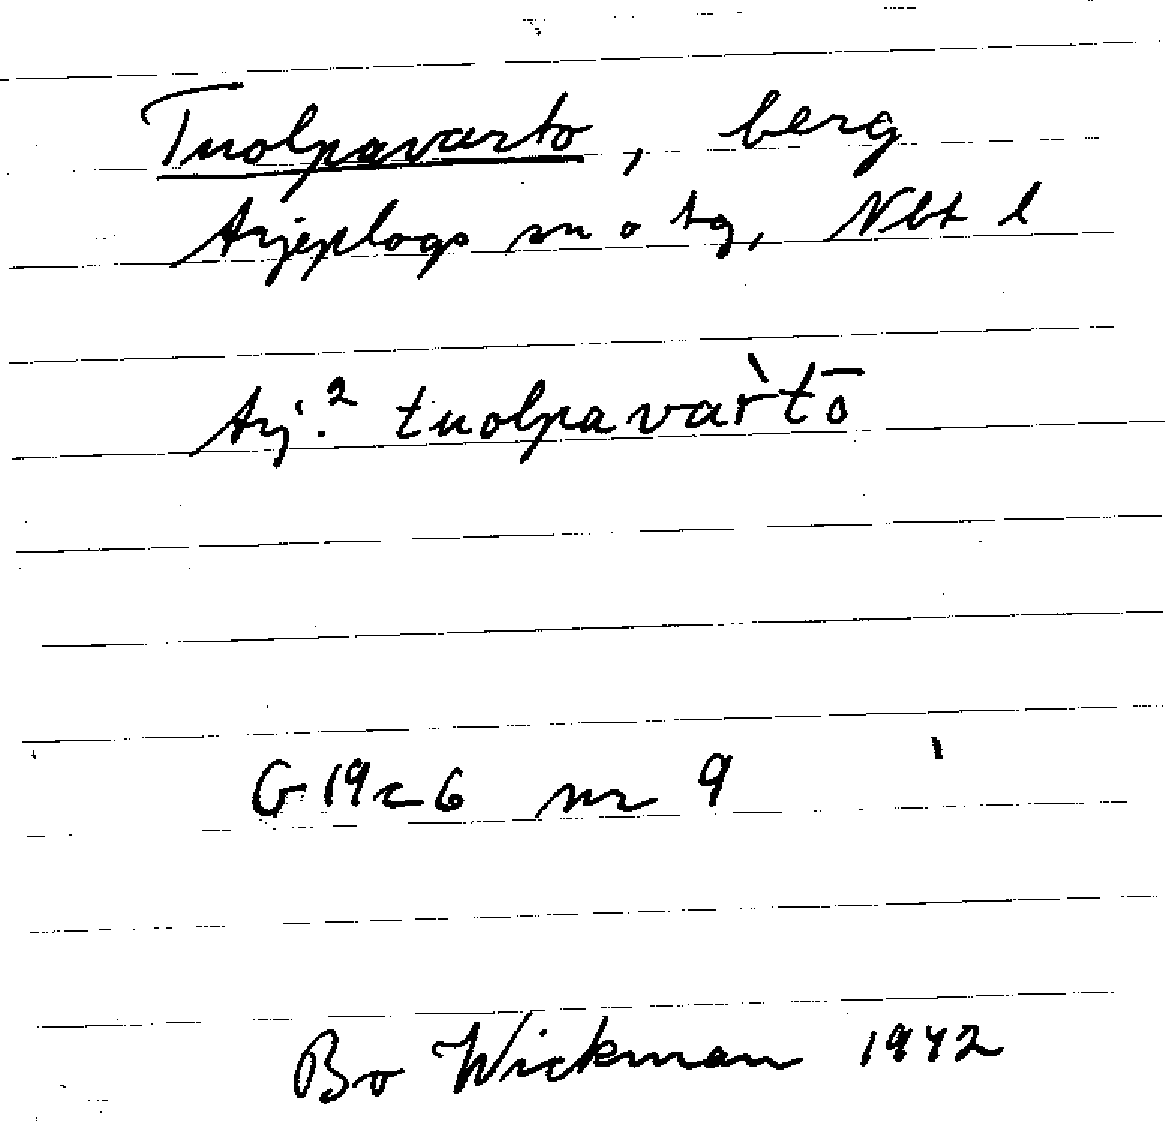 Tuolpavarto, berg
Arjeplogs sn o tg, Nbt l
Arj.² tuolpavar̀tō
G 19 c 6 nr 9
Bo Wickman 1942